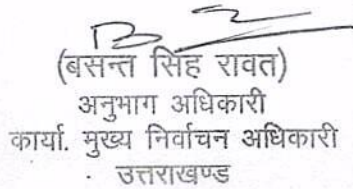 (बसन्त सिंह रावत)
अनुभाग अधिकारी
कार्या. मुख्य निर्वाचन अधिकारी
उत्तराखण्ड